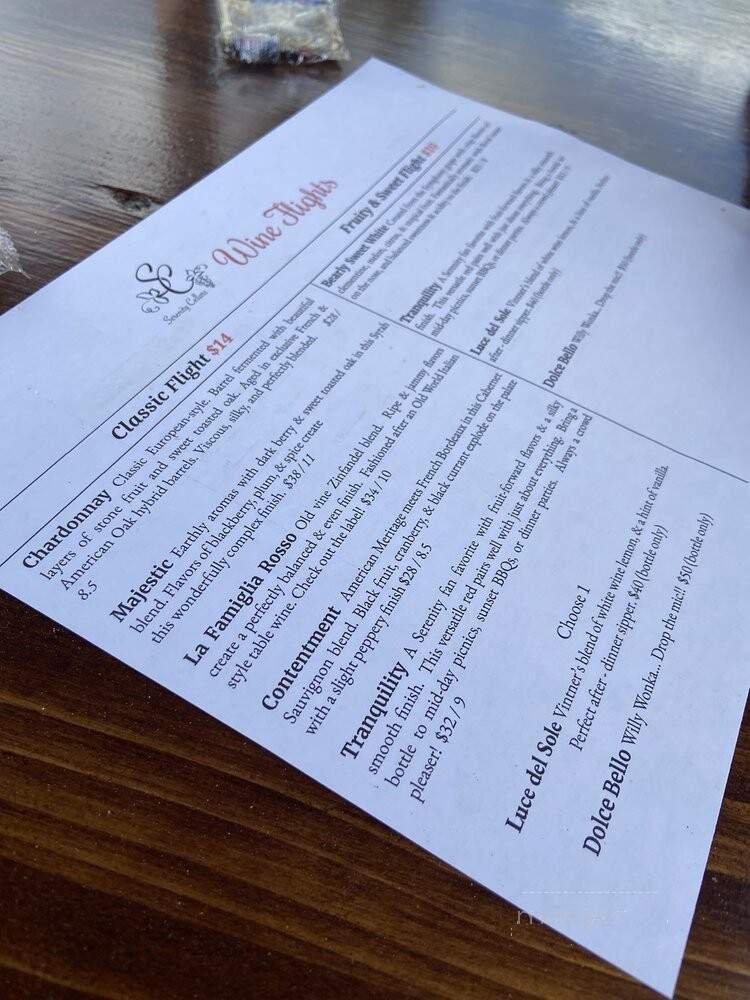 SC
Serenity Cellars
Wine Flights
Classic Flight $14
Chardonnay Classic European-style. Barrel fermented with beautiful
layers of stone fruit and sweet toasted oak. Aged in exclusive French &
American Oak hybrid barrels. Viscous, silky, and perfectly blended. $28/
8.5
Majestic Earthly aromas with dark berry & sweet toasted oak in this Syrah
blend. Flavors of blackberry, plum, & spice create
this wonderfully complex finish. $38 / 11
La Famiglia Rosso Old vine Zinfandel blend. Ripe & jammy flavors
create a perfectly balanced & even finish. Fashioned after an Old World Italian
style table wine. Check out the label $34 / 10
Contentment American Meritage meets French Bordeaux in this Cabernet
Sauvignon blend. Black fruit, cranberry, & black currant explode on the palate
with a slight peppery finish $28 / 8.5
Tranquility A Serenity fan favorite with fruit-forward flavors & a silky
smooth finish. This versatile red pairs well with just about everything. Bring a
bottle to mid-day picnics, sunset BBQs, or dinner parties. Always a crowd
pleaser! $32 / 9
Choose 1
Luce del Sole Vintner's blend of white wine lemon, & a hint of vanilla.
Perfect after - dinner sipper. $40 (bottle only)
Dolce Bello Willy Wonka... Drop the mic!! $50 (bottle only)
Fruity & Sweet Flight
Bearly Sweet White
Tranquility A Serenity fan favorite with fruit-forward flavors & a silky smooth
finish. This versatile red pairs well with just about everything.
mid-day picnics, sunset BBQs, or dinner parties.
Luce del Sole Vintner's blend of white wine lemon, & a hint of vanilla. Perfect
after - dinner sipper. $40 (bottle only)
Dolce Bello Willy Wonka... Drop the mic!! $50 (bottle only)